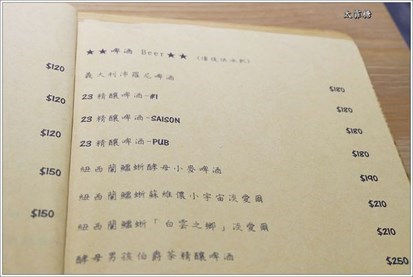 ★★啤酒 Beer★★
$120
義大利沛羅尼啤酒 $180
$120
23 精釀啤酒-#1 $180
23 精釀啤酒-SAISON $180
$120
23 精釀啤酒-PUB $180
$150
紐西蘭鱷蜥酵母小麥啤酒 $190
紐西蘭鱷蜥蘇維儂小宇宙淡愛爾 $210
$150
紐西蘭鱷蜥「白雲之鄉」淡愛爾 $210
酵母男孩伯爵茶精釀啤酒 $250